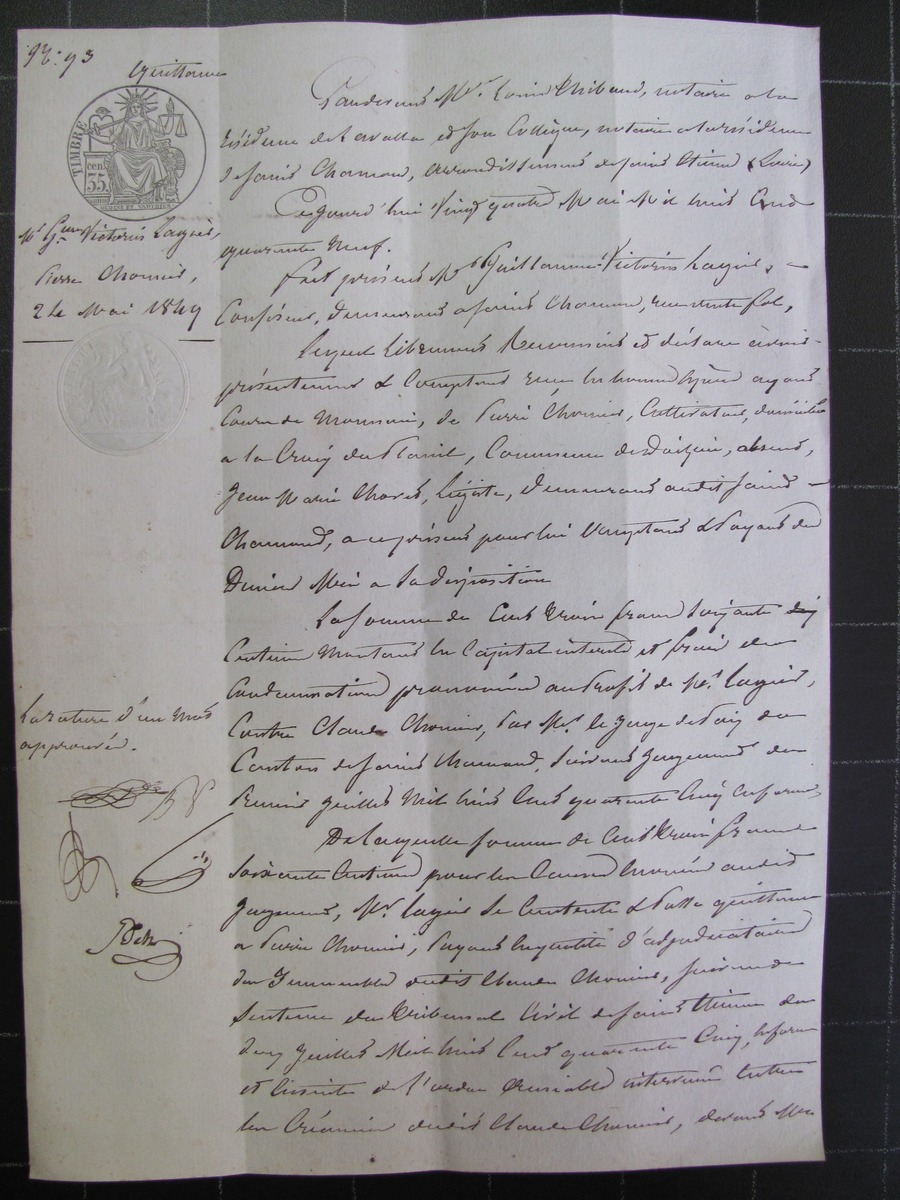 Quittance
TIMBRE
cen.
35
Mr Gme Victorin Lagier,
Pierre Chomier,
24 Mai 1849
Pardevant Me Louis Thibaud, notaire à la
résidence de Lavalla et son Collègue, notaire à la résidence
de Saint Chamond, arrondissement de Saint Etienne (Loire)
Cejourd'hui Vingt quatre Mai Mil huit Cent
quarante neuf.
Fut présent Mr Guillaume-Victorin Lagier,
Confiseur, demeurant à Saint Chamond, rue
Lequel librement Reconnait et déclare avoir
présentement & Comptant reçu, en bonnes espèces ayant
Cours de Monnaie, de Pierre Chomier, Cultivateur, domicilié
a la Croix du Commune de absent,
Jean Marie demeurant audit Saint
Chamond, a ce présent pour lui Comptant & Payant des
Deniers Mis a sa disposition
La somme de Cent Trois francs Soixante
Centimes Montant en Capital intérêts et frais des
Condamnations prononcées au Profit de Mr Lagier,
Contre Claude Chomier, Par Mr le Juge de Paix du
Canton de Saint Chamond, Suivant Jugement du
Juillet Mil huit Cent quarante Cinq en forme,
La rature d'un mot
approuvée.
De laquelle somme de Cent Trois francs
Soixante Centimes pour les Causes énoncées audit
Jugement, Mr Lagier Se Contente & Passe quittance
a Pierre Chomier, Payant en qualité d'adjudicataire
des Immeubles dudit Claude Chomier, Suivant
Sentence du Tribunal Civil de Saint Etienne du
Juillet Mil huit Cent quarante Cinq, en forme
et Ensuite de l'ordre amiable intervenu Entre
les Créanciers dudit Claude Chomier, devant Me